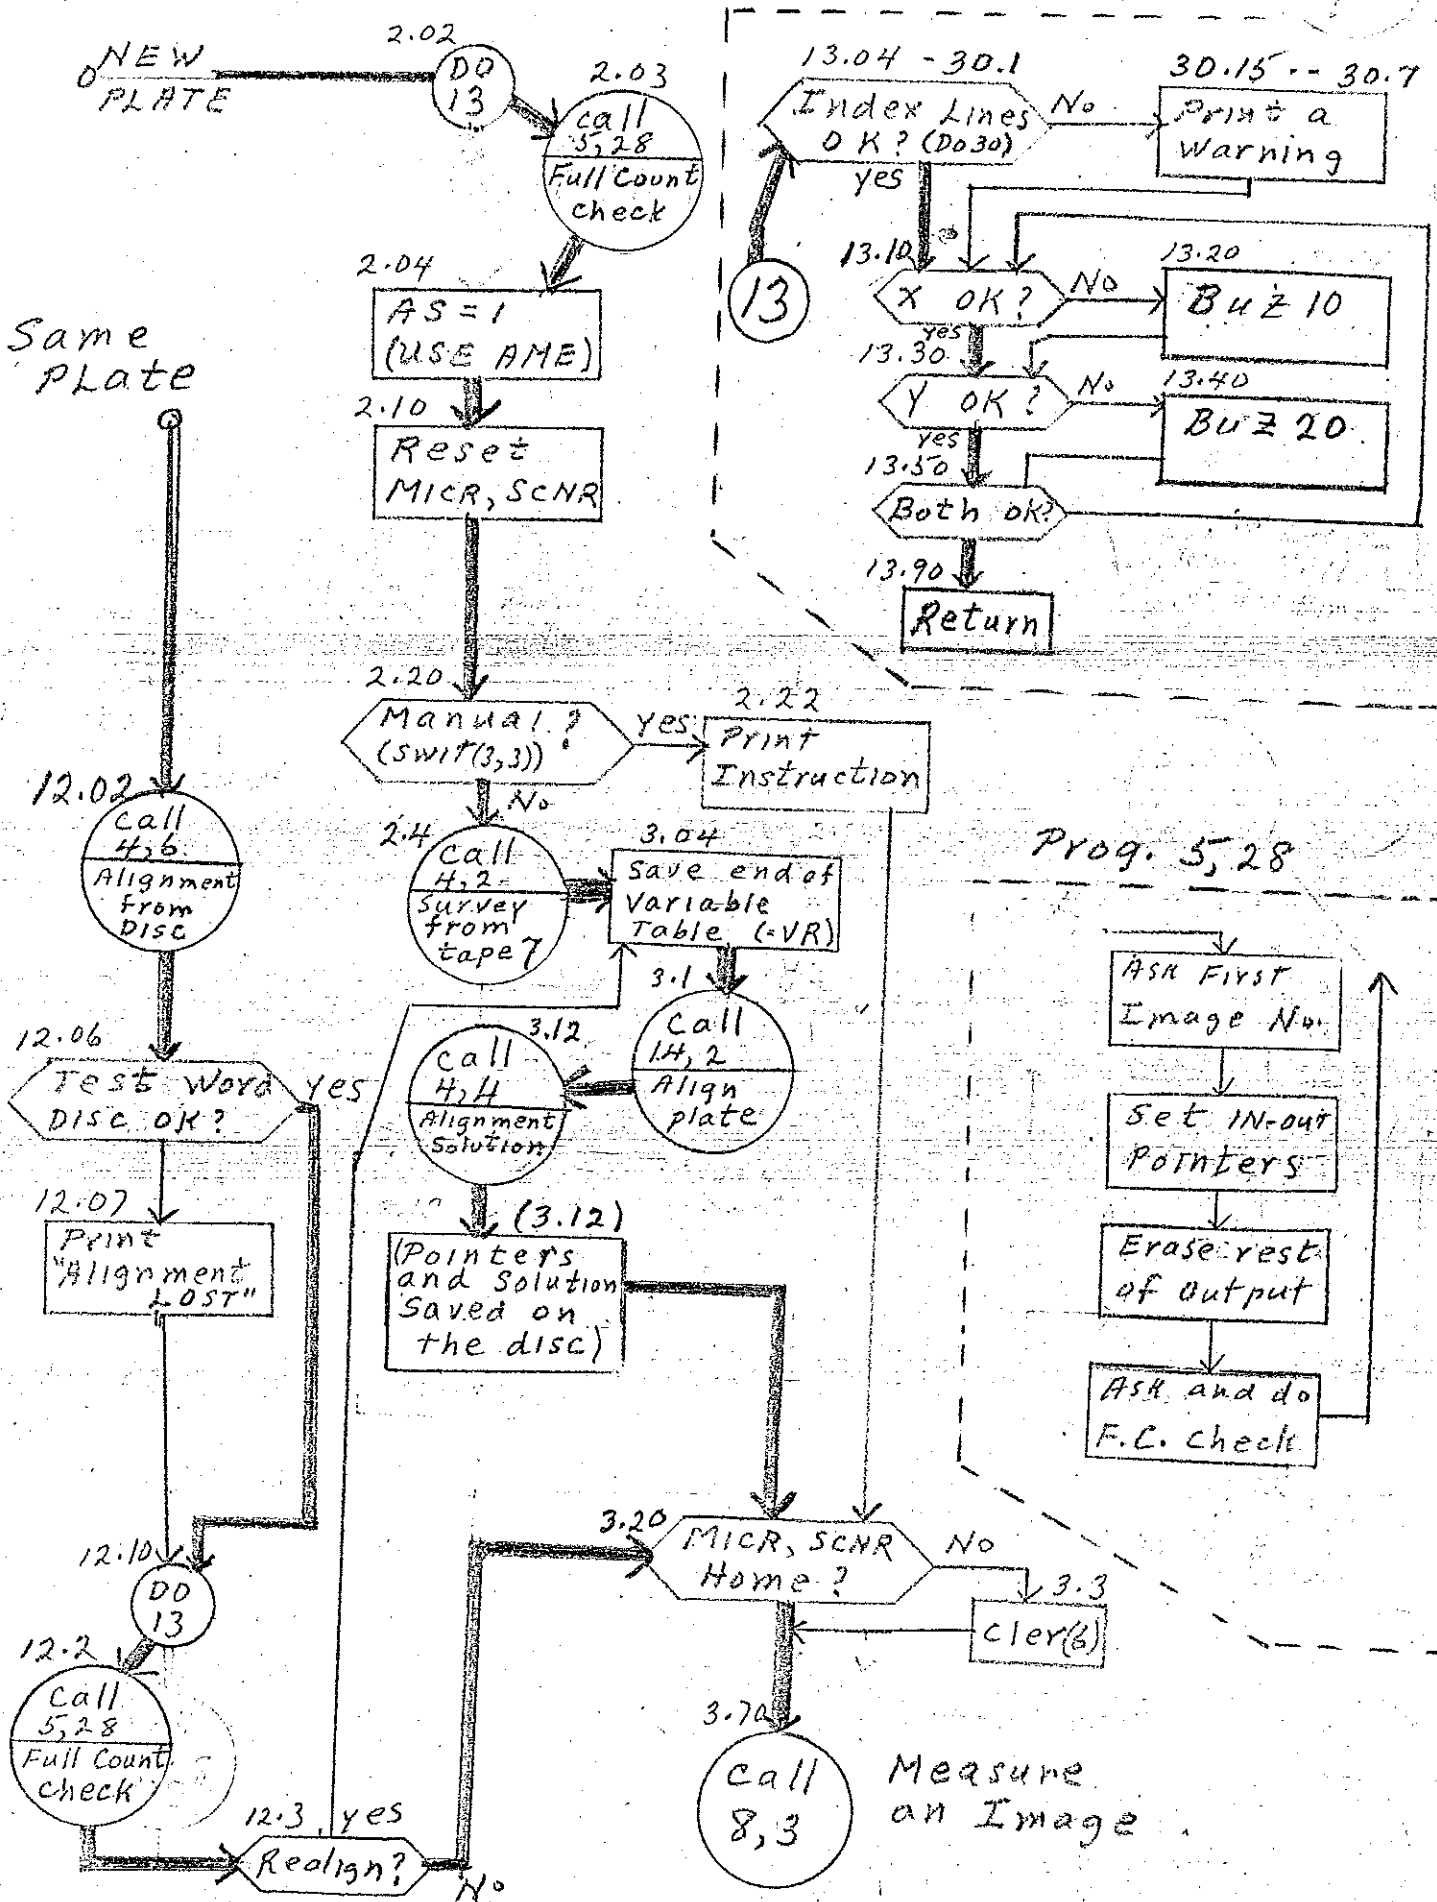 NEW
PLATE
2.02
DO
13
2.03
Call
5,28
Full Count
check
2.04
AS = 1
(USE AME)
2.10
Reset
MICR, SCNR
2.20
Manual?
(SWIT(3,3))
yes
No
2.22
Print
Instruction
2.4
Call
4,2
Survey
from
tape 7
3.04
Save end of
Variable
Table (=VR)
3.1
Call
14,2
Align
plate
3.12
Call
4,4
Alignment
Solution
(3.12)
(Pointers
and Solution
Saved on
the disc)
3.20
MICR, SCNR
Home?
No
3.3
Cler(6)
3.70
Call
8,3
Measure
an Image
Same
PLate
12.02
Call
4,6
Alignment
from
DISC
12.06
Test Word
DISC OK?
yes
12.07
Print
"Alignment
LOST"
12.10
DO
13
12.2
Call
5,28
Full Count
check
12.3
yes
Realign?
No
13.04 - 30.1
Index Lines
OK? (DO30)
No
yes
30.15 -- 30.7
Print a
Warning
13
13.10
X OK?
No
yes
13.20
Buz 10
13.30
Y OK?
No
yes
13.40
Buz 20
13.50
Both OK?
13.90
Return
Prog. 5,28
ASK First
Image No.
Set IN-OUT
Pointers
Erase rest
of output
ASK and do
F.C. check